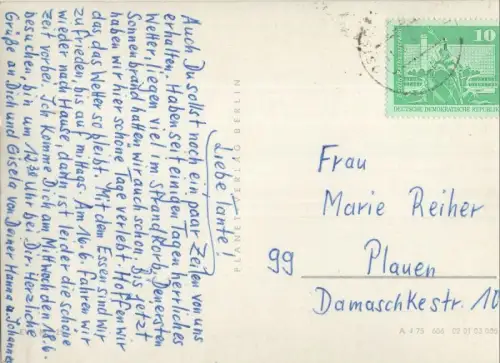 Liebe Tante!
Auch Du sollst noch ein paar Zeilen von uns
erhalten. Haben seit einigen Tagen herrliches
Wetter, liegen viel im Strandkorb, Den ersten
Sonnenbrand hatten wir auch schon. Bis jetzt
haben wir hier schöne Tage verlebt. Hoffen wir
das, das Wetter so bleibt. Mit dem Essen sind wir
zufrieden, bis auf mittags. Am 16.6. fahren wir
wieder nach Hause, dann ist leider die schöne
Zeit vorbei. Ich komme Dich am Mittwoch den 18.6.
besuchen, bin um 12.30 Uhr bei Dir. Herzliche
Grüße an Dich und Gisela von Deiner Hanna u. Johannes
PLANETEN-VERLAG BERLIN
10
DEUTSCHE DEMOKRATISCHE REPUBLIK
Frau
Marie Reiher
99 Plauen
Damaschkestr. 10